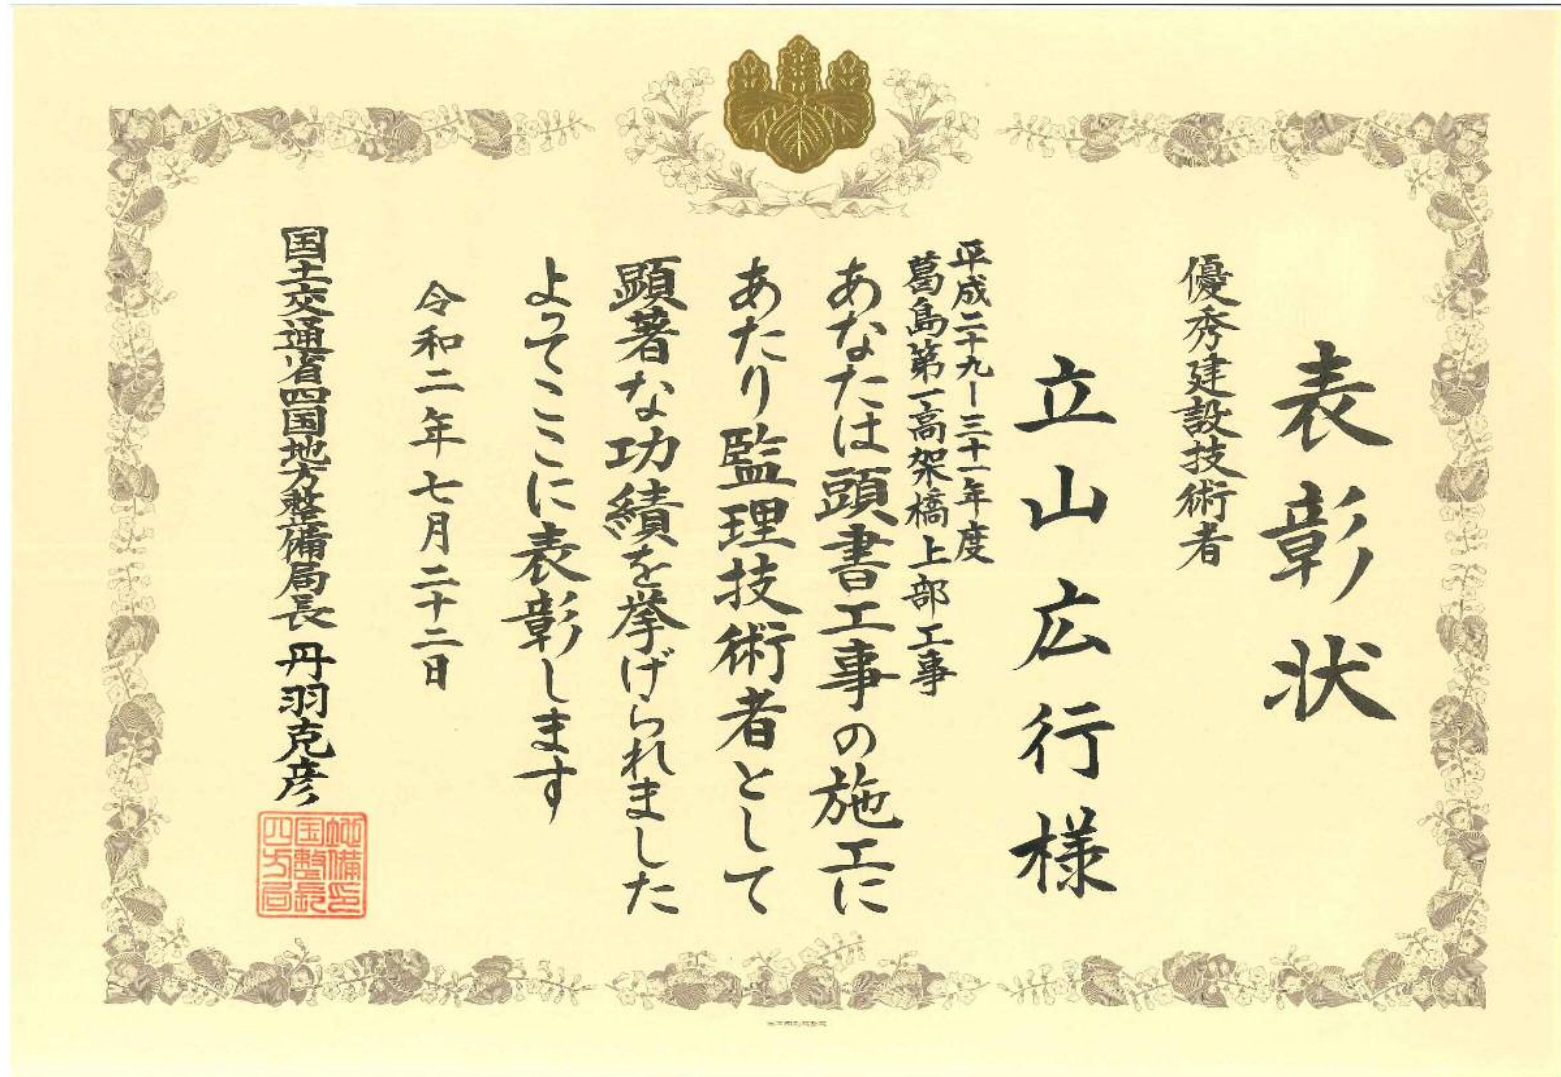 表彰状
優秀建設技術者
立山広行様
平成二十九ー三十一年度
葛島第一高架橋上部工事
あなたは頭書工事の施工に
あたり監理技術者として
顕著な功績を挙げられました
よってここに表彰します
令和二年七月二十二日
国土交通省四国地方整備局長 丹羽克彦